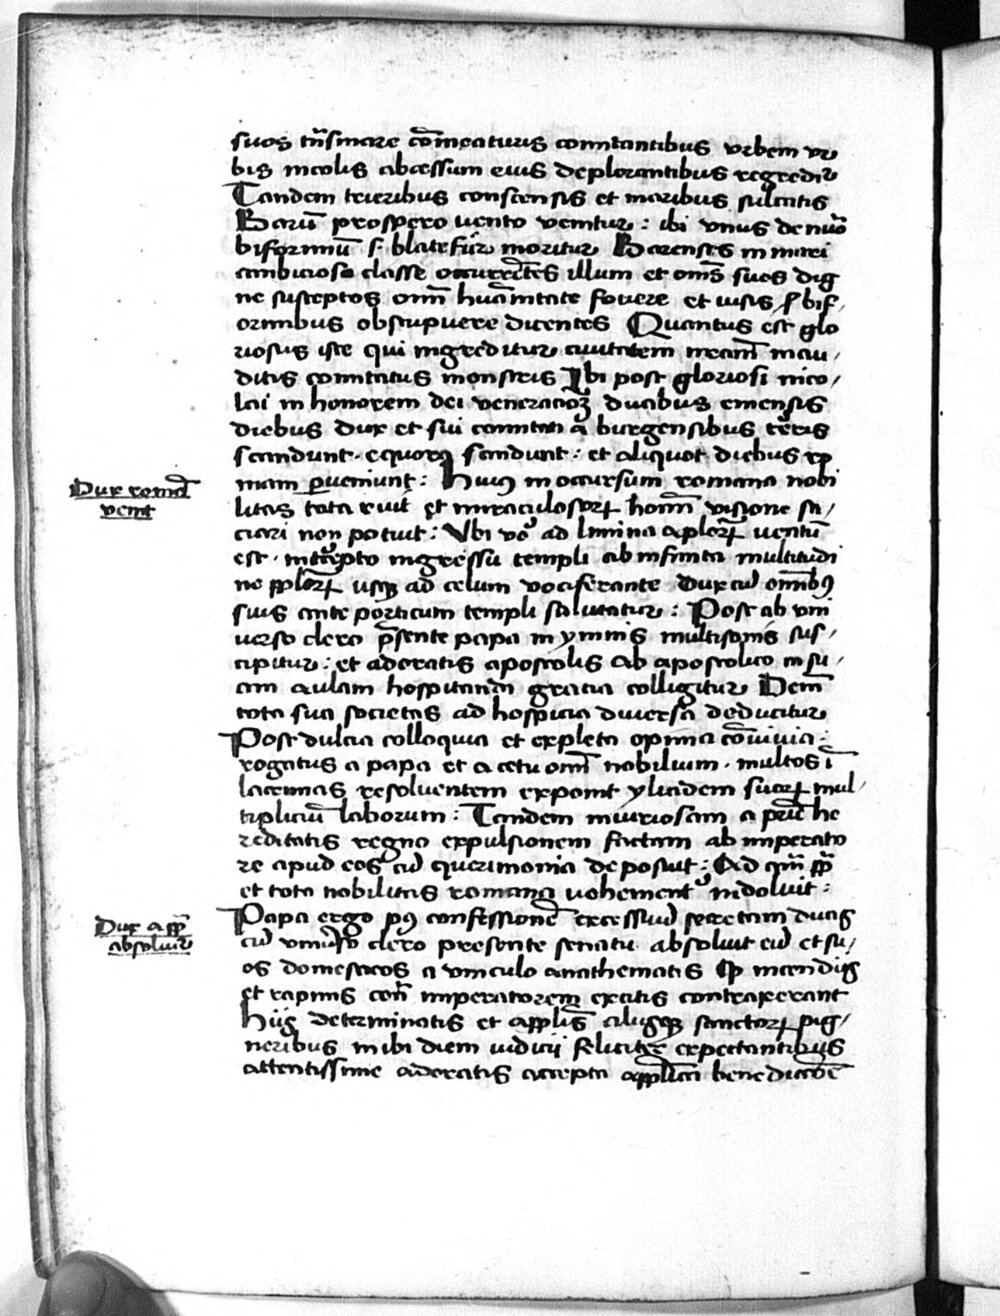 suos tn̄smare cōmeaturis comitantibus vrbem vr
bis incolis abcessum eius deplorantibus regredit̄
Tandem trieribus conscensis et maribus sulcatis
Barū prospero uento venitur : ibi vnus de nūo
biformiū s. blatefūr moritur Barenses in mari
ambicioso classe occurrētes illum et om̄s suos dig
ne susceptos om̄ huāmitate fovere et uisis s bif,
ormibus obstupuere dicentes Quantus est glo
riosus iste qui ingreditur ciuitatem meam̄ inau,
ditis comitatus monstris Ibi post gloriosi nico,
lai in honorem dei veneracōꝫ duabus emensis
diebus dux et sui comitati a burgensibus tēris
scandunt . equorꝫ scandunt : et aliquot diebus ro
mam ꝑueniunt : Huiꝰ in occursum romana nobi
litas tota ruit et miraculosorꝝ hoīm̄ visione sa,
ciari non potuit : Vbi vᵒ ad limina aplorꝝ ventū
est . intercepto ingressu templi ab infinita multitudi
ne pplorꝝ usqꝫ ad celum vociferante dux cū om̄ibꝰ
suis ante porticum templi salutatur : Post ab vni
uerso clero p̄sente papa in ymnis multisonis sus,
cipitur : et adoratis apostolis ab apostolico in su,
am aulam hospitandi gratia colligitur Dem̄
tota sua societas ad hospicia diuersa deducitur
Post dulcia colloquia et expleta opima cōuiuia :
rogatus a papa et a cetu om̄ nobilium . multos ī
lacrimas resoluentem exponit yliadem suorꝝ mul,
tipliciū laborum : Tandem iniuriosam a pr̄ie he
reditatis regno expulsionem factam ab imperato
re apud eos cū querimonia deposuit : Ad qm̄ pp̄
et tota nobilitas romana vehementᵉ indoluit :
Papa ergo pꝰ confessionē excessiuū secretam ducis
cū vniuso clero presente senatu absoluit eū et su,
os domesticos a vinculo anathematis qꝫ incendijs
et rapinis con̄ imperatorem exatis contraxerant
Hijs determinatis et applīs alijsqꝫ sanctorꝝ pig,
neribus in ibi diem iudicij feliciter expectantibus
attentissime adoratis accepta appl̄ica benedictōe
Dux romā
venit
Dux a pp̄
absoluit̄